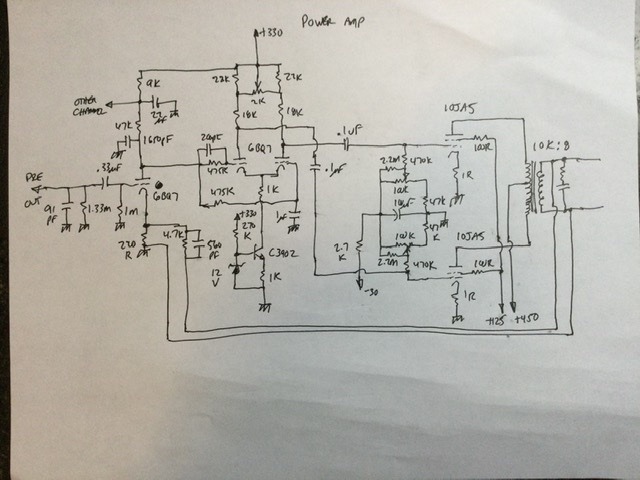 POWER AMP
+330
9K
22K
22K
2K
OTHER
CHANNEL
22
µF
47K
18K
18K
1650pF
10JA5
.1µF
10K:8
200pF
6BQ7
100R
.33µF
475K
2.2M
470K
.1µF
PRE
OUT
6BQ7
475K
1K
100K
1R
47K
91
PF
1.33m
1m
+330
270
K
.1µF
10µF
47
K
4.7K
560
PF
C3902
100K
10JA5
220
R
2.7
K
2.2M
470K
100R
12
V
1K
-30
1R
+125
+450